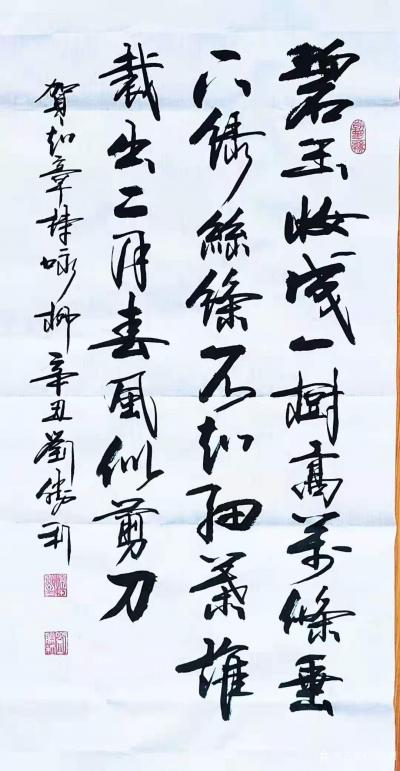 碧玉妝成一樹高萬條垂
下綠絲絛不知細葉誰
裁出二月春風似剪刀
賀知章詩咏柳辛丑劉勝利